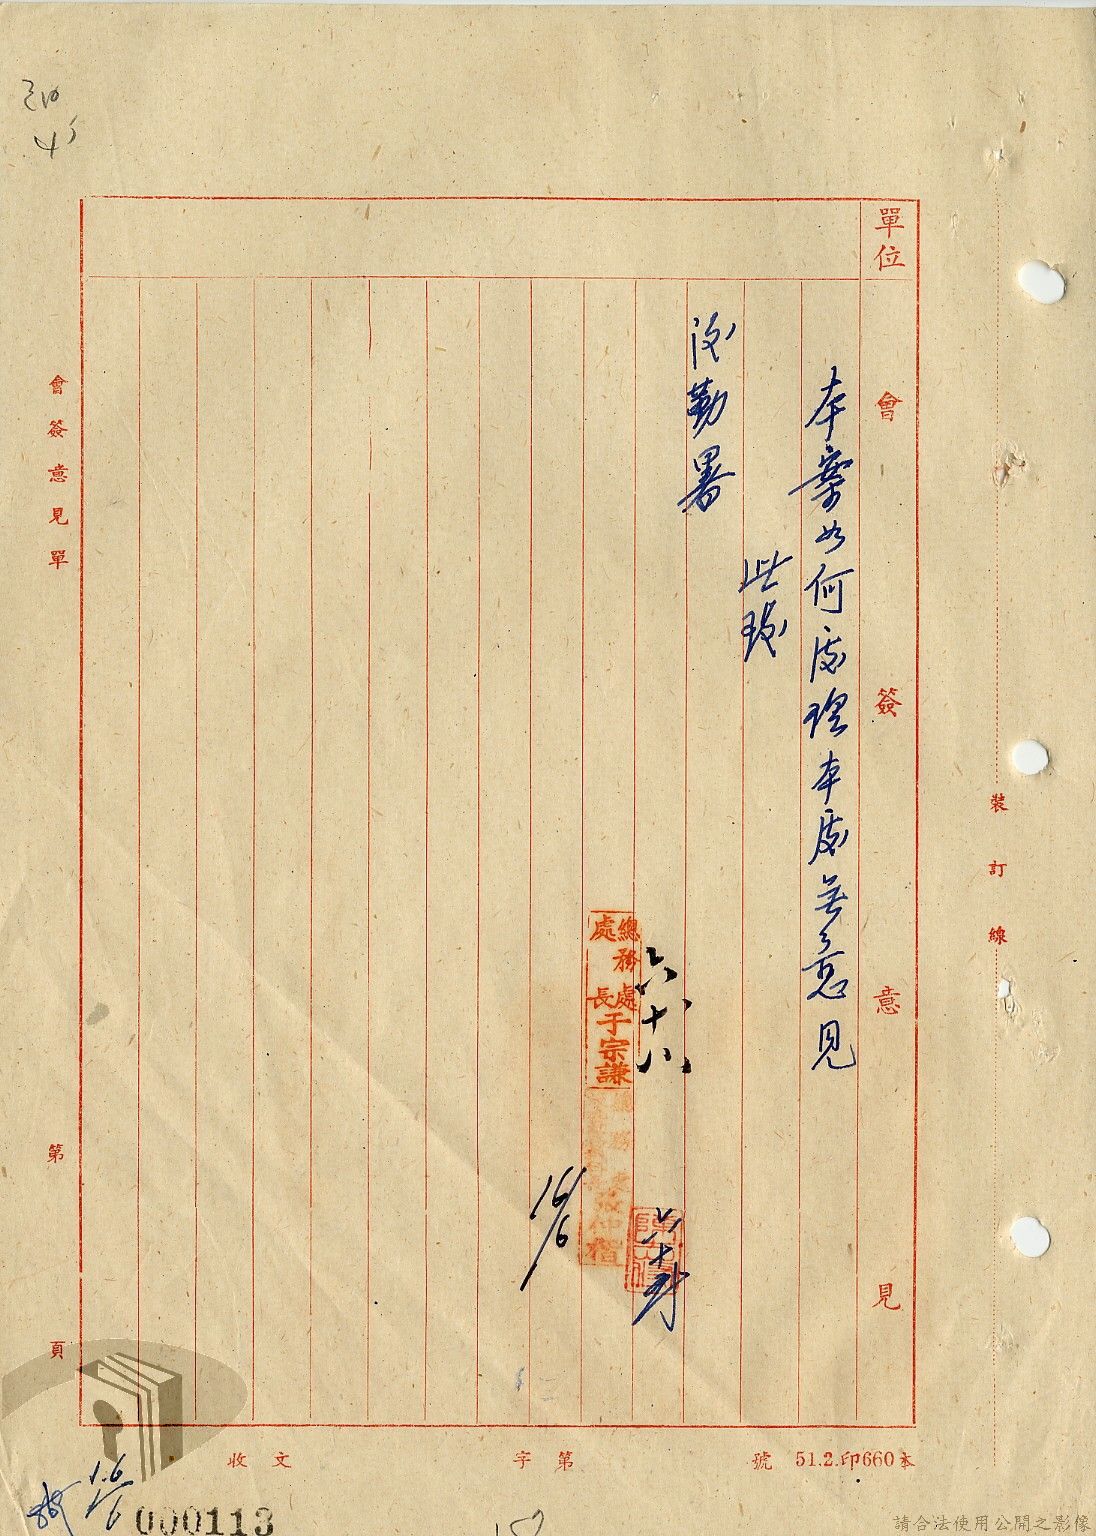 單位
會簽意見
本案如何處理本處無意見
此致
後勤署
六十八
總務處
處長于宗謙
16/6
會簽意見單
第
頁
裝訂線
收文
字第
號
51.2.印660本
16/6
000113
請合法使用公開之影像